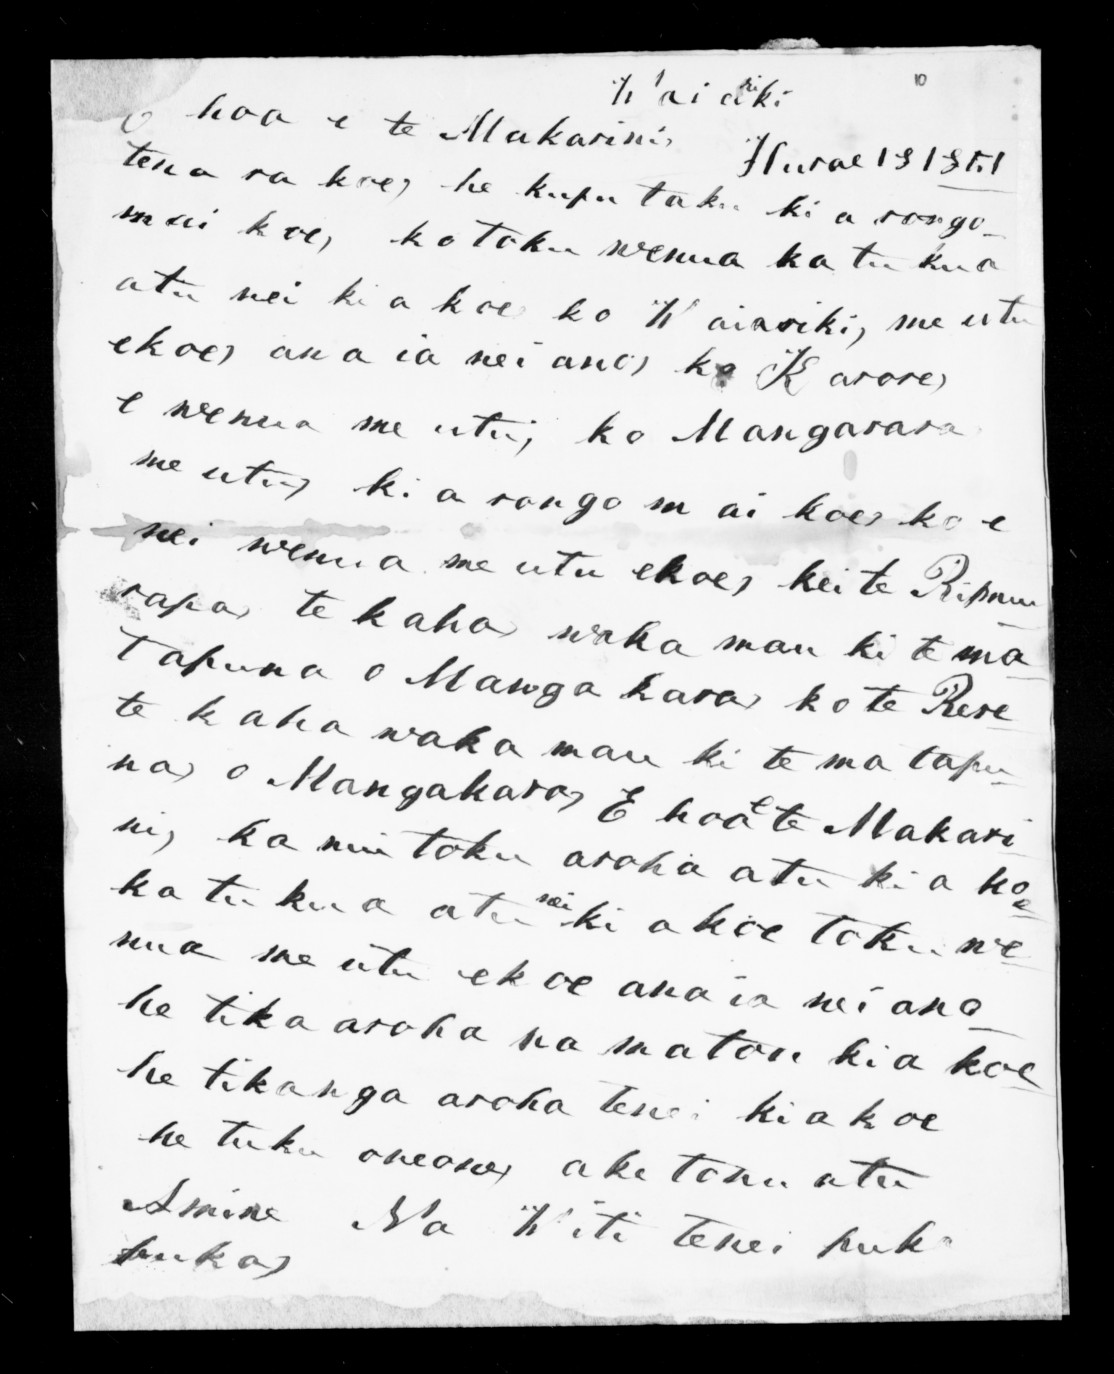 10
Waiariki
hoa e te Makarini,
Hurae 13 1851
tena ra koe, he kupu taku ki a rongo-
mai koe, ko toku wenua ka tukua
atu nei ki a koe ko Waiariki, me utu
ekoe, ana ia nei ano, ko Karore,
e wenua me utu, ko Mangarara
me utu, ki a rongo mai koe, ko e
nei wenua me utu ekoe, kei te
rapa, te kaha, waka mau ki te ma
tapuna o Mangakara, ko te Rere
te kaha waka mau ki te matapu-
na, o Mangakara, E hoa e te Makari
ni, ka nui toku aroha atu ki a koe
ka tukua atu nei ki a koe toku we
nua me utu ekoe ana ia nei ano
he tika aroha na matou ki a koe
he tikanga aroha tenei ki a koe
he tuku oneone, ake tonu atu
Amine Na Witi tenei puka
puka,